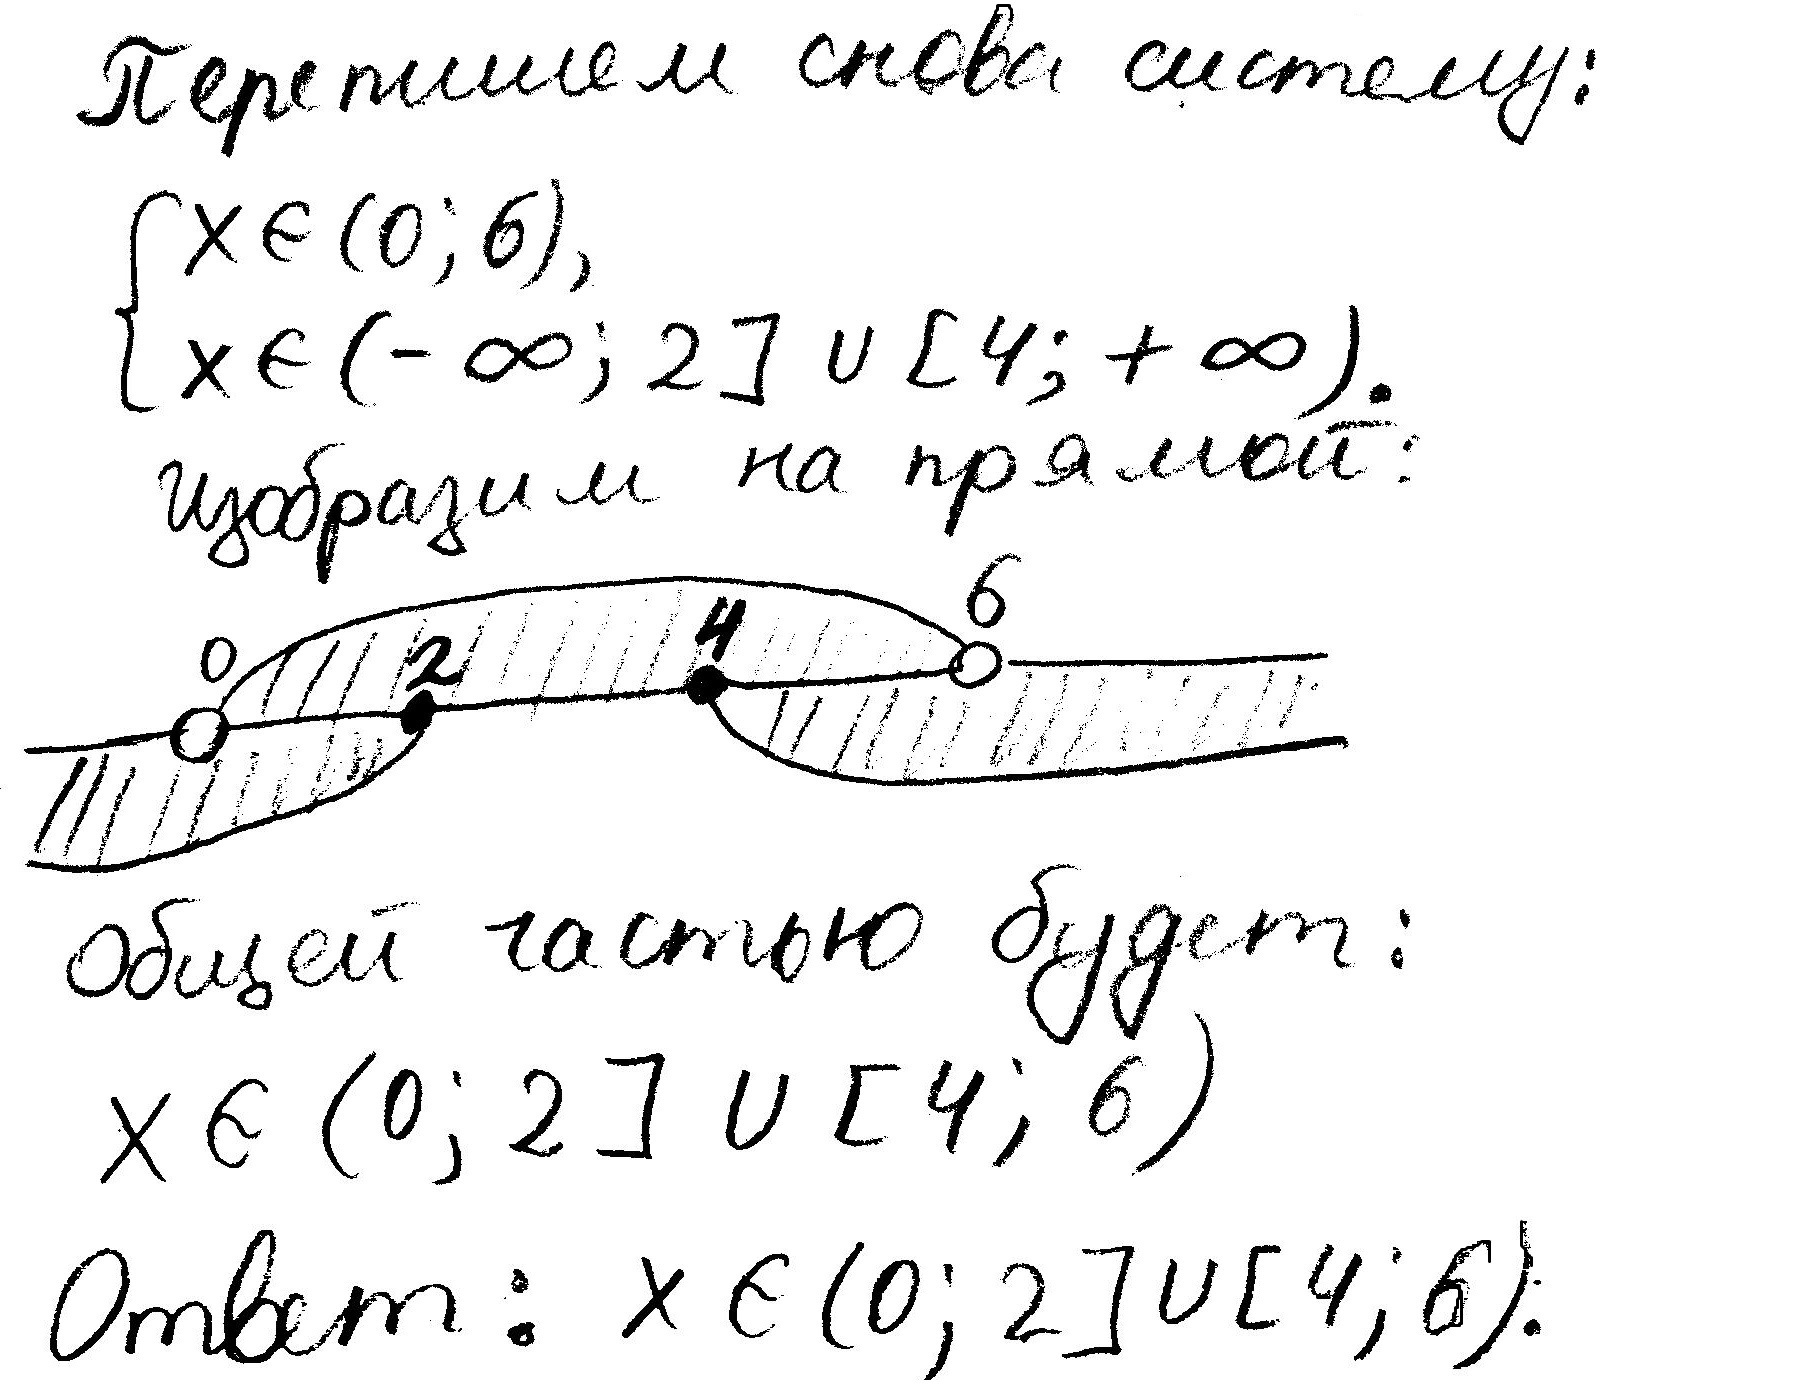 Перепишем снова систему:
{ x ∈ (0; 6),
x ∈ (- ∞; 2] ∪ [4; + ∞).
Изобразим на прямой:
0 2 4 6
Общей частью будет:
x ∈ (0; 2] ∪ [4; 6)
Ответ: x ∈ (0; 2] ∪ [4; 6).